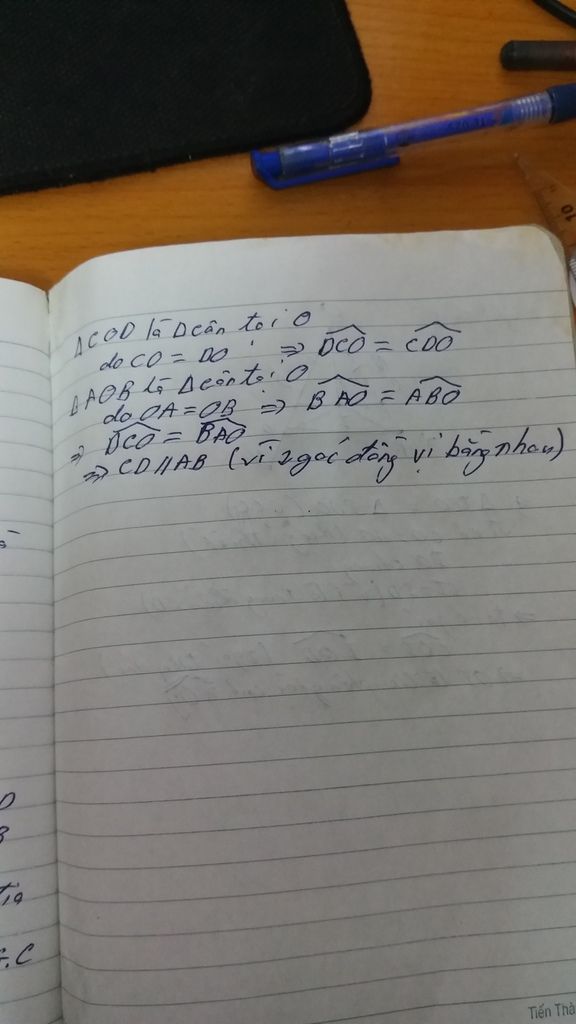 ΔCOD là Δ cân tại O
do CO = DO ⇒ \widehat{DCO} = \widehat{CDO}
ΔAOB là Δ cân tại O
do OA = OB ⇒ \widehat{BAO} = \widehat{ABO}
⇒ \widehat{DCO} = \widehat{BAO}
⇒ CD // AB (vì 2 góc đồng vị bằng nhau)
D
B
tia
C
10